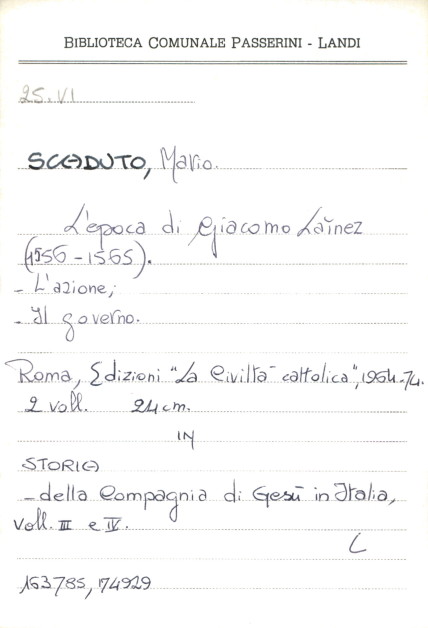 BIBLIOTECA COMUNALE PASSERINI - LANDI
25.VI
SCADUTO, Mario.
L'epoca di Giacomo Laĭnez
(1556-1565).
- L'azione;
- Il governo.
Roma, Edizioni "La Civiltà cattolica", 1964-74.
2 voll. 24 cm.
IN
STORIA
- della Compagnia di Gesù in Italia,
voll. III e IV.
L
163785, 174929